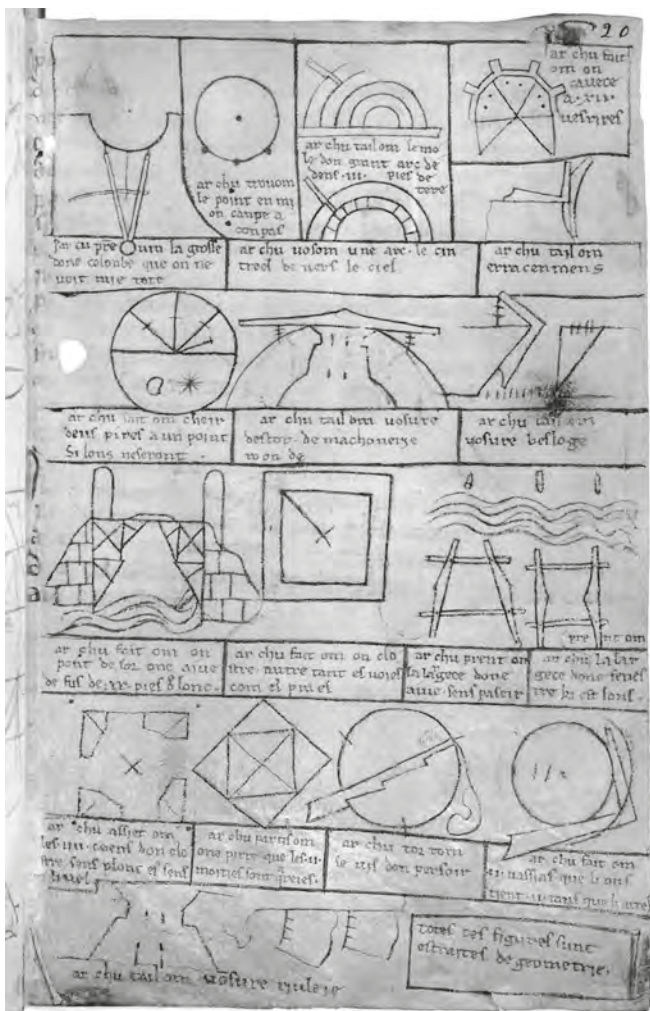 20
ar chu fait
om on
cavece
a · xii ·
vesrires
ar chu tail om le mo
le don grant arc de
dens · iii · pies de
tere
ar chu trovom
le point en mi
on canpe a
conpas
ar cu prent om la grosse
done colonbe que on ne
voit mie tote
ar chu vosom une arc · le cin
treel devers le ciel
ar chu tail om
erracemens
ar chu fait om cheir
deus pires a un point
si lons ne seront ·
ar chu tail om vosure
destor · de machonerie
roonde
ar chu tail om
vosure besloge
ar chu fait om on
pont desor one aive
de fus de · xx · pies d lonc ·
ar chu fait om on clo
istre · autretant es voies
com el prael
ar chu prent om
la largece done
aive · sens paseir
prent om
ar chu la lar
gece done fenes
tre ki est lons ·
ar chu assiet om
les · iiii · coens don clo
istre · sens plonc et sens
livel
ar chu partis om
one pirre que les · ii ·
moities sont qareies ·
ar chu tor torn
le vis don persoir
ar chu fait om
· ii · vassias que li ons
tient · ii · tans que li atre
ar chu tail om vosure riulele
totes ces figures sunt
estraites de geometrie ·